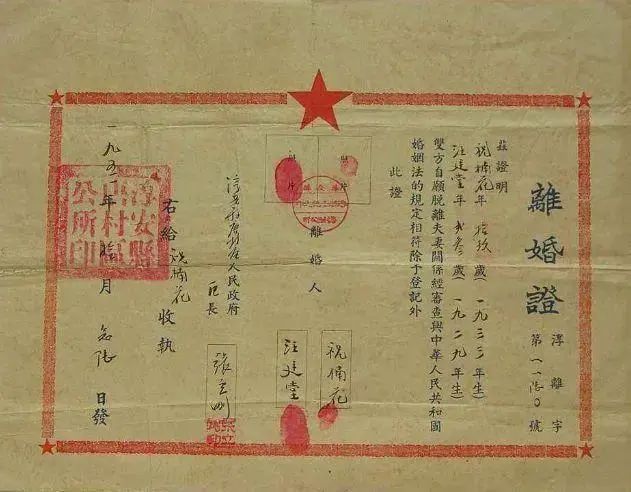 離婚證
淳離字
第一一〇號
茲證明
祝楠花年拾玖歲(一九三三年生)
汪建堂年歲(一九二九年生)
雙方自願脱離夫妻關係經審查與中華人民共和國
婚姻法的規定相符除予登記外
此證
照片
片
離婚人
祝楠花
汪建堂
人民政府
區長
張
右給祝楠花收執
一九五年月日發
淳安縣
村區
公所印